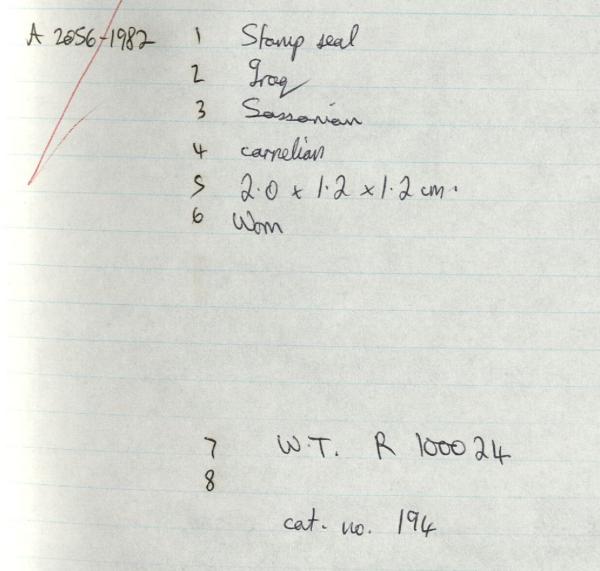 A 2056-1982 1 Stamp seal
2 Iraq
3 Sassanian
4 carnelian
5 2.0 x 1.2 x 1.2 cm.
6 Worn
7 W.T. R 100024
8
cat. no. 194